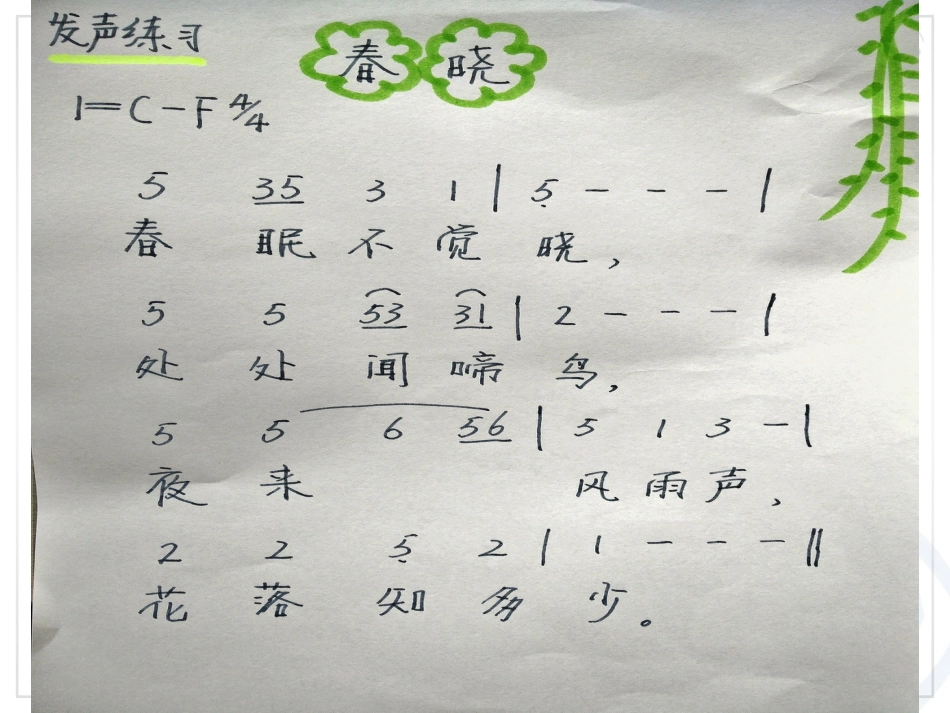 发声练习
春晓
1=C-F 4/4
5 35 3 1 | 5̣ - - - |
春 眠 不 觉 晓,
5 5 53 31 | 2 - - - |
处 处 闻 啼 鸟,
5 5 6 56 | 5 1 3 - |
夜 来 风 雨 声,
2 2 5̣ 2 | 1 - - - ‖
花 落 知 多 少。